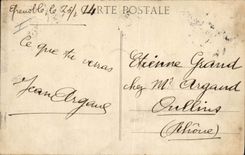 Grenoble, le 25/2 14
CARTE POSTALE
Ce que tu veras
Jean Argaud
Etienne Grand
chez Mr Argaud
Oullins
(Rhône)